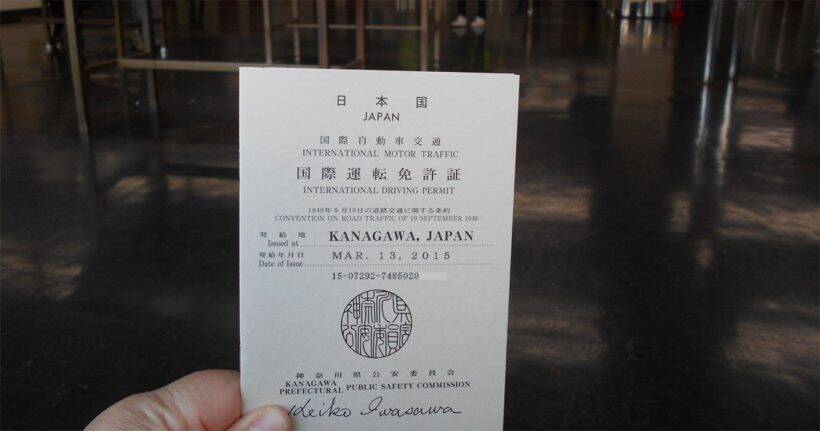 日本国
JAPAN
国際自動車交通
INTERNATIONAL MOTOR TRAFFIC
国際運転免許証
INTERNATIONAL DRIVING PERMIT
1949年9月19日の道路交通に関する条約
CONVENTION ON ROAD TRAFFIC OF 19 SEPTEMBER 1949
発給地
Issued at KANAGAWA, JAPAN
発給年月日
Date of Issue MAR. 13, 2015
15-07292-7485020
神奈川県公安委員会
KANAGAWA PREFECTURAL PUBLIC SAFETY COMMISSION
Keiko Iwasawa